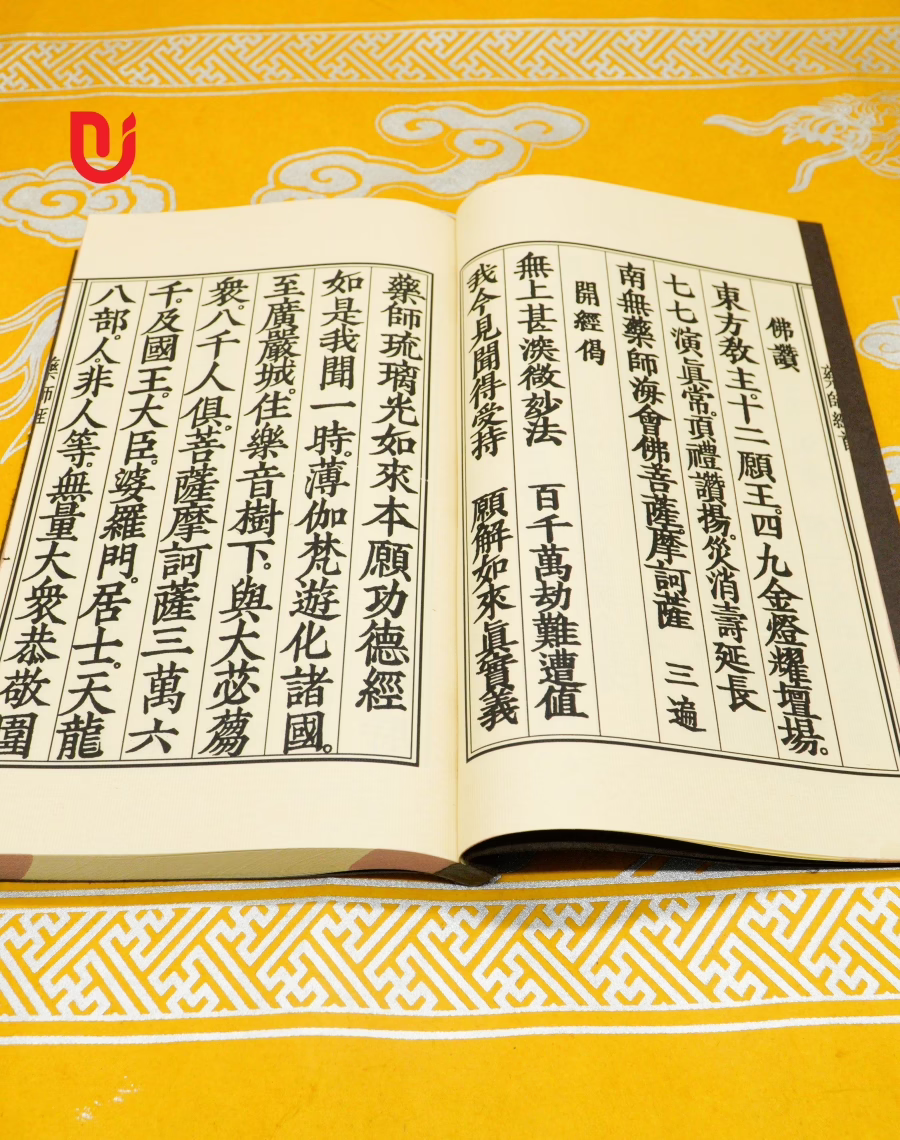 佛讚
東方教主。十二願王。四九金燈耀壇場。
七七演眞常。頂禮讚揚。災消壽延長
南無藥師海會佛菩薩摩訶薩 三遍
開經偈
無上甚深微妙法 百千萬劫難遭值
我今見聞得受持 願解如來眞實義
藥師琉璃光如來本願功德經
如是我聞一時。薄伽梵遊化諸國。
至廣嚴城。住樂音樹下。與大苾蒭
衆。八千人俱。菩薩摩訶薩三萬六
千。及國王。大臣。婆羅門。居士。天龍
八部。人。非人等。無量大衆恭敬圍